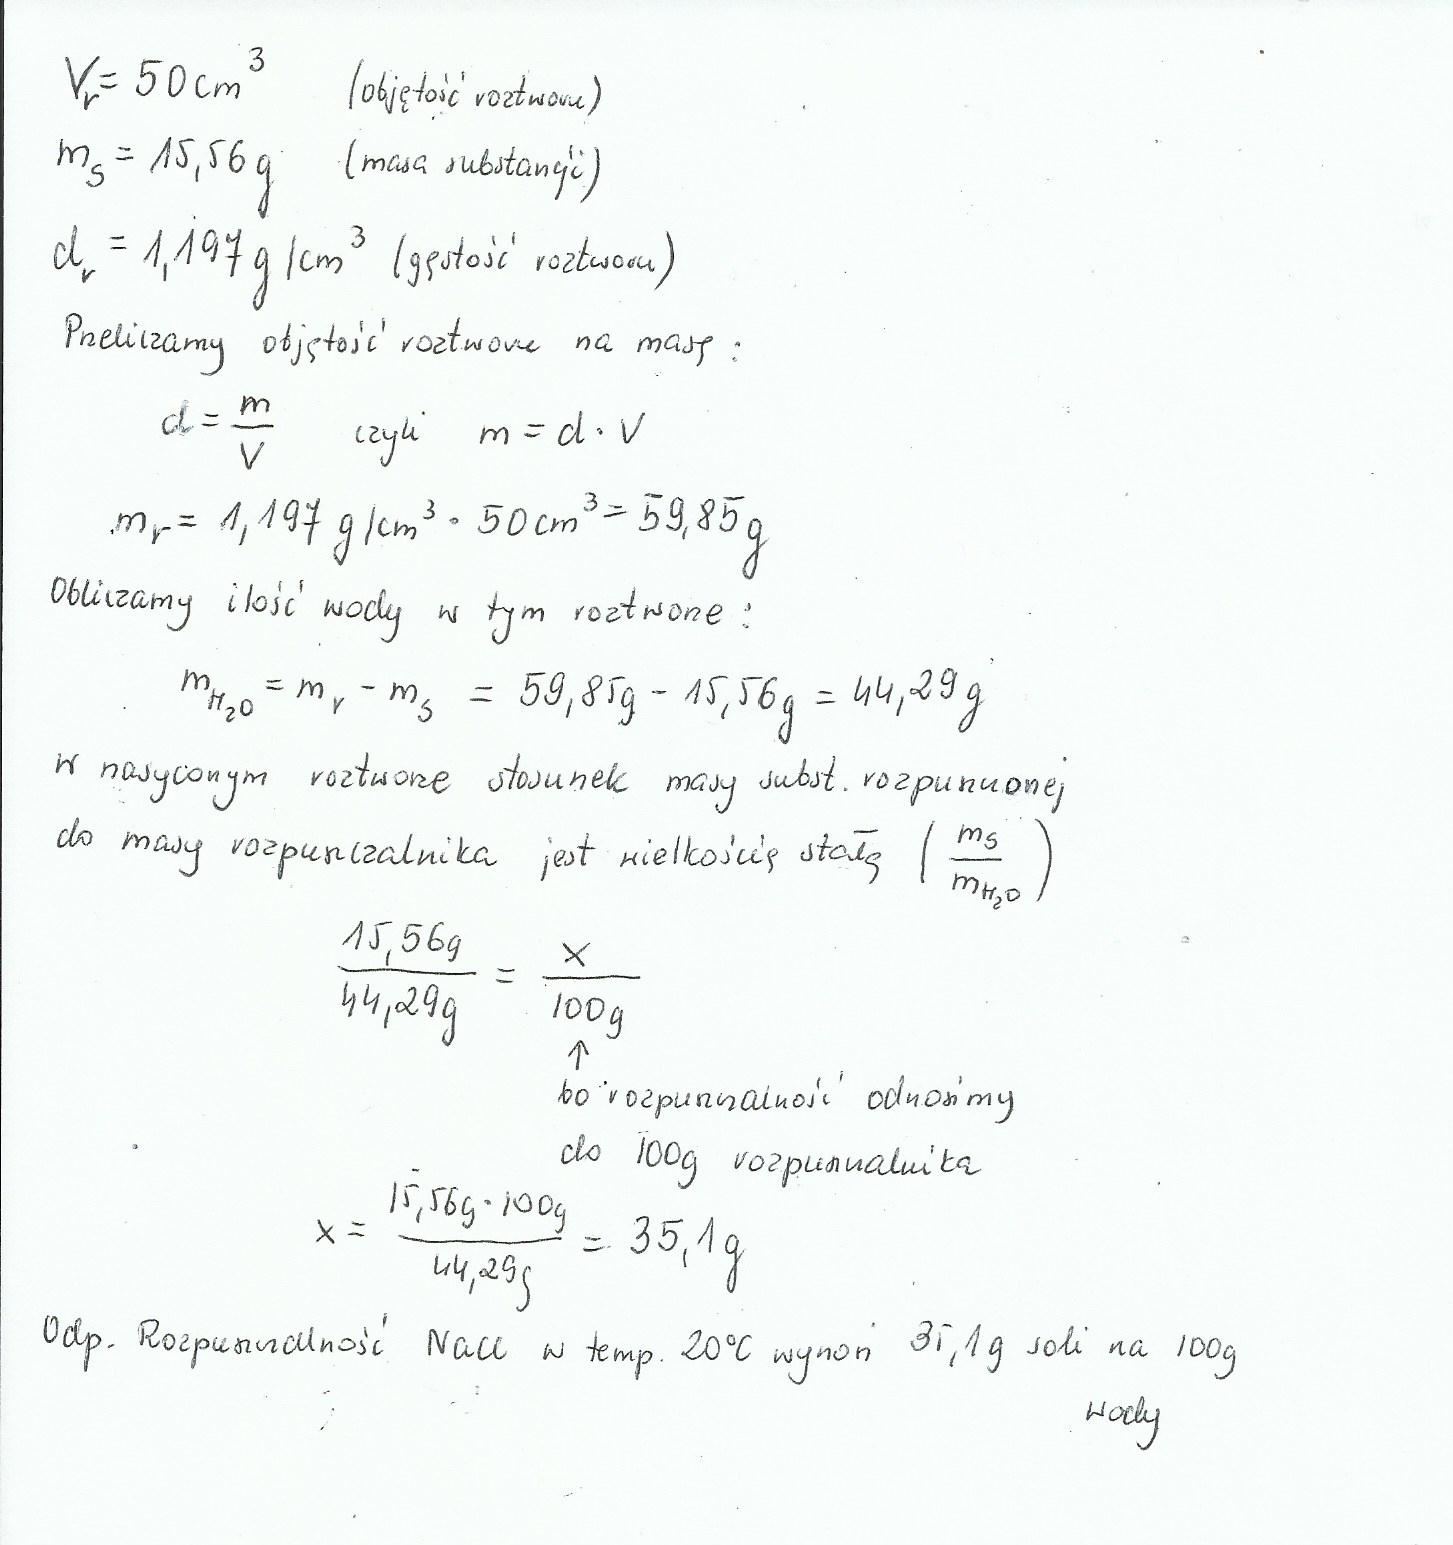 Vr = 50 cm³ (objętość roztworu)
ms = 15,56 g (masa substancji)
dr = 1,197 g/cm³ (gęstość roztworu)
Przeliczamy objętość roztworu na masę:
d = m/V czyli m = d · V
mr = 1,197 g/cm³ · 50 cm³ = 59,85 g
Obliczamy ilość wody w tym roztworze:
mH₂O = mr - ms = 59,85g - 15,56g = 44,29 g
W nasyconym roztworze stosunek masy subst. rozpuszczonej
do masy rozpuszczalnika jest wielkością stałą (ms/mH₂O)
15,56g/44,29g = x/100g
↑
bo rozpuszczalność odnosimy
do 100g rozpuszczalnika
x = 15,56g · 100g/44,29g = 35,1 g
Odp. Rozpuszczalność NaCl w temp. 20°C wynosi 35,1g soli na 100g
wody